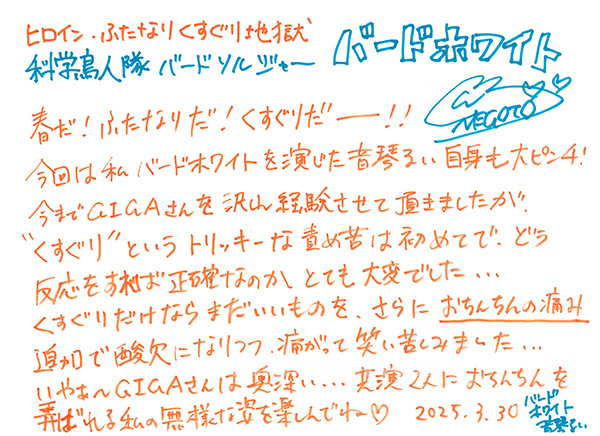 ヒロイン・ふたなりくすぐり地獄
科学鳥人隊 バードソルジャー
バードホワイト
NEGOTO
春だ!ふたなりだ!くすぐりだー!!
今回は私 バードホワイトを演じた音琴るい自身も大ピンチ!
今までGIGAさんを沢山経験させて頂きましたが、
"くすぐり"というトリッキーな責め苦は初めてで、どう
反応をすれば正確なのか、とても大変でした...
くすぐりだけならまだいいものを、さらにおちんちんの痛み
追加で酸欠になりつつ、痛がって笑い苦しみました...
いやぁ〜GIGAさんは奥深い...共演2人におちんちんを
弄ばれる私の無様な姿を楽しんでね♡ 2025.3.30
バード
ホワイト
音琴るい